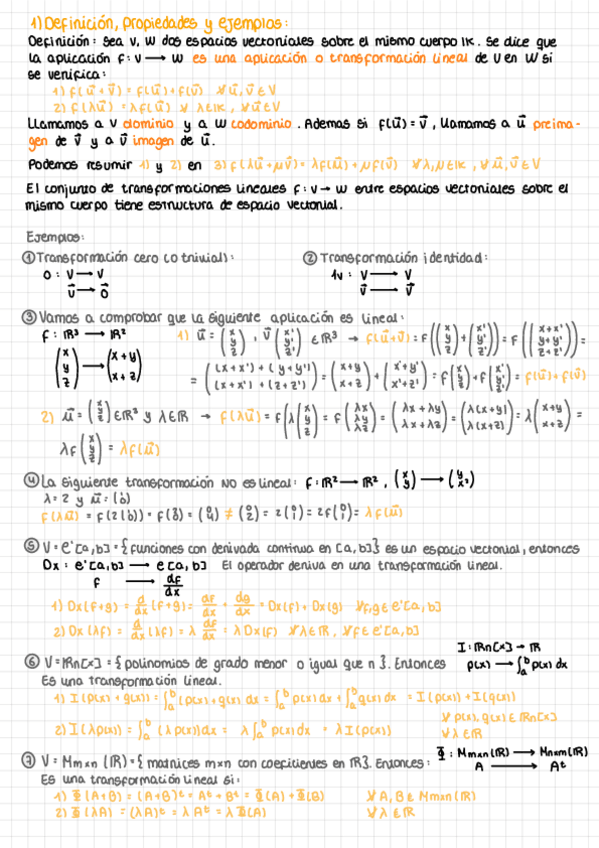 1) Definición, propiedades y ejemplos:
Definición: Sea V, W dos espacios vectoriales sobre el mismo cuerpo IK. Se dice que
la aplicación f: V → W es una aplicación o transformación lineal de V en W si
se verifica:
1) f(u⃗ + v⃗) = f(u⃗) + f(v⃗) ∀ u⃗, v⃗ ∈ V
2) f(λu⃗) = λf(u⃗) ∀ λ ∈ IK, ∀ u⃗ ∈ V
Llamamos a V dominio y a W codominio. Ademas si f(u⃗) = v⃗, llamamos a u⃗ preima-
gen de v⃗ y a v⃗ imagen de u⃗.
Podemos resumir 1) y 2) en 3) f(λu⃗ + μv⃗) = λf(u⃗) + μf(v⃗) ∀ λ, μ ∈ IK, ∀ u⃗, v⃗ ∈ V
El conjunto de transformaciones lineales f: V → W entre espacios vectoriales sobre el
mismo cuerpo tiene estructura de espacio vectorial.
Ejemplos:
① Transformación cero (o trivial): ② Transformación identidad:
0 : V → V 1v : V → V
v⃗ → 0⃗ v⃗ → v⃗
③ Vamos a comprobar que la siguiente aplicación es lineal:
f: IR³ → IR² 1) u⃗ = (x y z), v⃗ (x' y' z') ∈ IR³ → f(u⃗+v⃗) = f((x y z) + (x' y' z')) = f((x+x' y+y' z+z')) =
(x y z) → (x+y x+z) = ((x+x') + (y+y') (x+x') + (z+z')) = (x+y x+z) + (x'+y' x'+z') = f(x y z) + f(x' y' z') = f(u⃗) + f(v⃗)
2) u⃗ = (x y z) ∈ IR³ y λ ∈ IR → f(λu⃗) = f(λ(x y z)) = f(λx λy λz) = (λx + λy λx + λz) = (λ(x+y) λ(x+z)) = λ(x+y x+z) =
λf(x y z) = λf(u⃗)
④ La siguiente transformación NO es lineal: f: IR² → IR², (x y) → (y x²)
λ = 2 y u⃗ = (1 0)
f(λu⃗) = f(2(1 0)) = f(2 0) = (0 4) ≠ (0 2) = 2(0 1) = 2f(1 0) = λf(u⃗)
⑤ V = e'[a,b] = {funciones con derivada continua en [a,b]} es un espacio vectorial, entonces
Dx : e'[a,b] → e[a,b] El operador deriva en una transformación lineal.
f → df/dx
1) Dx(f+g) = d/dx (f+g) = df/dx + dg/dx = Dx(f) + Dx(g) ∀ f,g ∈ e'[a,b]
2) Dx(λf) = d/dx (λf) = λ df/dx = λ Dx(f) ∀ λ ∈ IR, ∀ f ∈ e'[a,b]
I : IRn[x] → IR
⑥ V = IRn[x] = {polinomios de grado menor o igual que n}. Entonces p(x) → ∫ₐᵇ p(x) dx
Es una transformación lineal.
1) I(p(x) + g(x)) = ∫ₐᵇ (p(x) + g(x) dx = ∫ₐᵇ p(x) dx + ∫ₐᵇ g(x) dx = I(p(x)) + I(g(x)) ∀ p(x), g(x) ∈ IRn[x]
2) I(λp(x)) = ∫ₐᵇ (λ p(x)) dx = λ ∫ₐᵇ p(x) dx = λ I(p(x)) ∀ λ ∈ IR
⑦ V = Mm×n (IR) = {matrices m×n con coeficientes en IR}. Entonces: Φ : Mm×n (IR) → Mn×m (IR)
Es una transformación lineal si: A → Aᵗ
1) Φ(A+B) = (A+B)ᵗ = Aᵗ + Bᵗ = Φ(A) + Φ(B) ∀ A, B ∈ Mm×n (IR)
2) Φ(λA) = (λA)ᵗ = λAᵗ = λΦ(A) ∀ λ ∈ IR